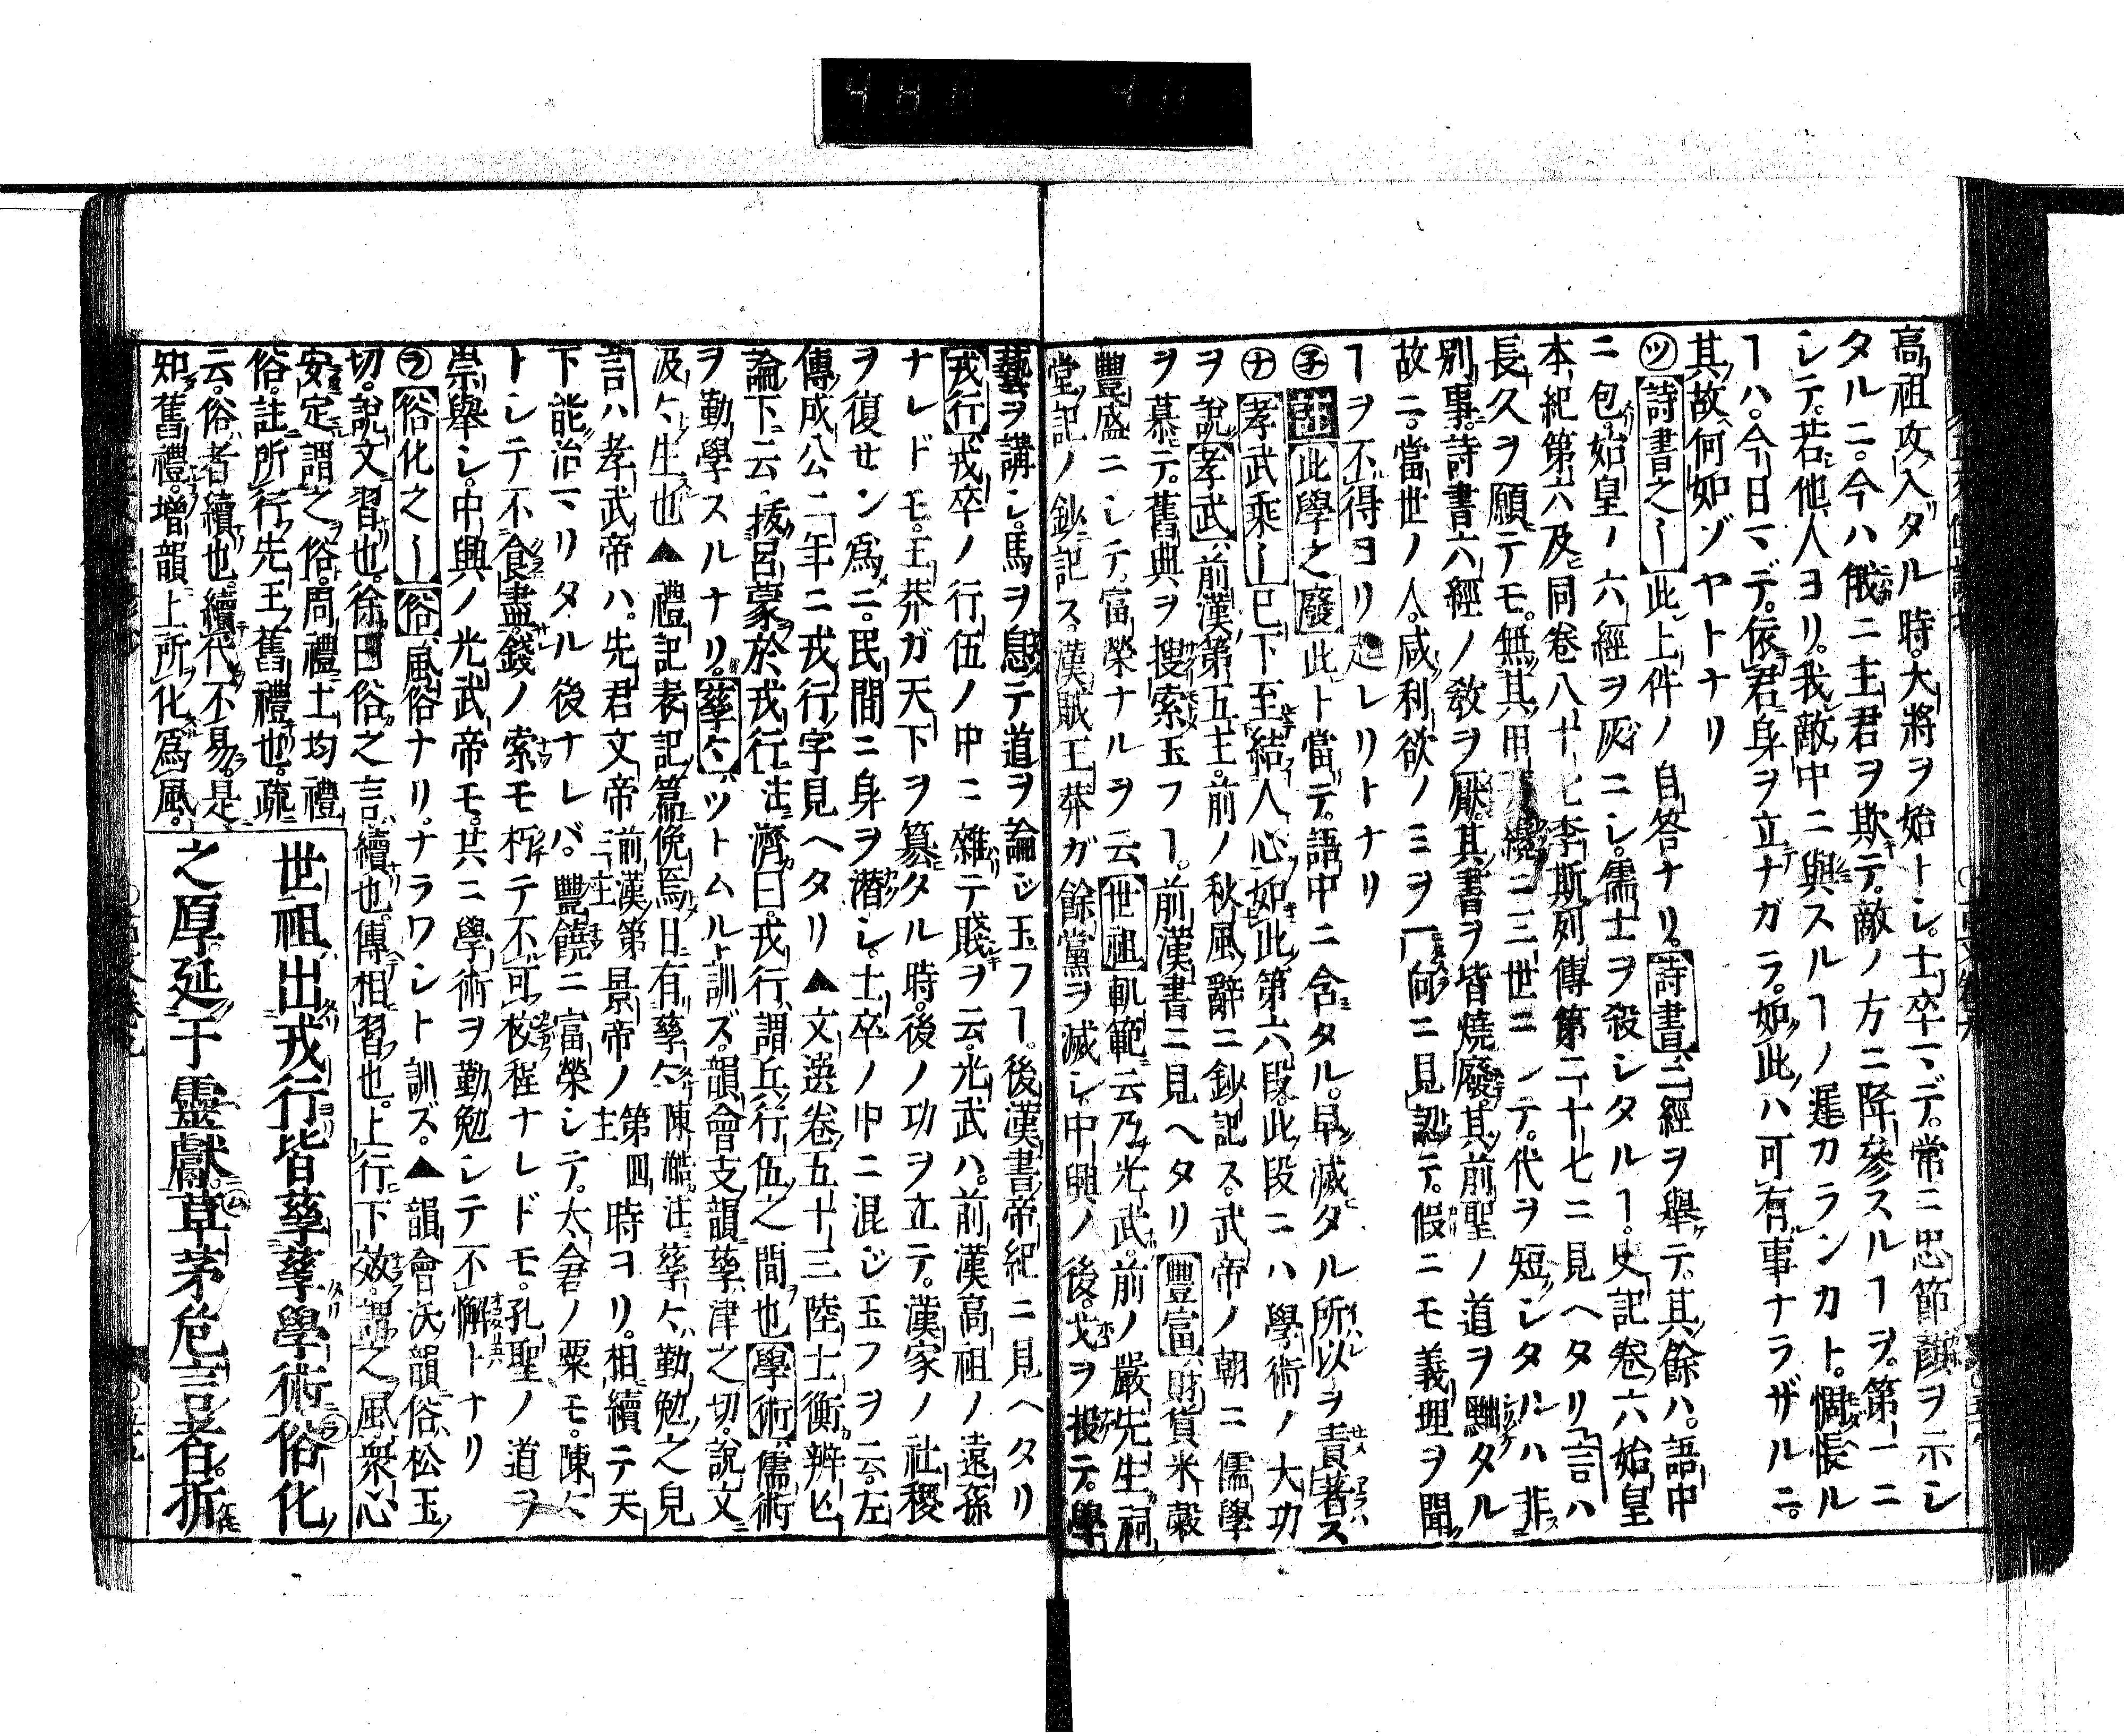 高祖攻入ダル時。大將ヲ始トシ。士卒マデ。常ニ忠節顏ヲ示シ
タルニ。今ハ俄ニ主君ヲ欺テ。敵ノ方ニ降參スルヿヲ。第一ニ
シテ。若他人ヨリ。我敵中ニ與スルヿノ遲カランカト。惆悵ル
ヿハ。今日マデ。依君身ヲ立ナガラ。如此ハ可有事ナラザルニ。
其故何如ゾヤトナリ
ツ詩書之〡此上件ノ自答ナリ。詩書二經ヲ舉テ。其餘ハ。語中
ニ包。始皇ノ六經ヲ灰ニシ。儒士ヲ殺シタルヿ。史記卷六始皇
本紀第六及同卷八十七李斯列傳第二十七ニ見ヘタリ言ハ
長久ヲ願テモ。無其用纔ニ三世ニシテ。代ヲ短シタルハ非
別事。詩書六經ノ敎ヲ厭。其書ヲ皆燒廢其前聖ノ道ヲ黜タル
故ニ。當世ノ人。咸利欲ノミヲ何ニ見認テ。假ニモ義理ヲ聞
ヿヲ不得ヨリ起レリトナリ
子註此學之廢此ト當テ。語中ニ含タル。早滅タル所以ヲ責著ス
ナ孝武乘〡已下至結人心如此第六段。此段ニハ學術ノ大功
ヲ說孝武前漢第五主。前ノ秋風辭ニ鈔記ス。武帝ノ朝ニ儒學
ヲ慕テ。舊典ヲ搜索玉フヿ。前漢書ニ見ヘタリ豐富財貨米穀
豐盛ニシテ。富榮ナルヲ云世祖軌範云乃光武。前ノ嚴先生祠
堂記ノ鈔記ス。漢賊王莽ガ餘黨ヲ滅シ。中興ノ後。戈ヲ投テ。學
藝ヲ講シ。馬ヲ息テ道ヲ論ジ玉フヿ。後漢書帝紀ニ見ヘタリ
戎行戎卒ノ行伍ノ中ニ雜テ賤ヲ云。光武ハ。前漢高祖ノ遠孫
ナレドモ。王莽ガ天下ヲ簒タル時。後ノ功ヲ立テ。漢家ノ社稷
ヲ復センタメニ。民間ニ身ヲ潛シ。士卒ノ中ニ混ジ玉フヲ云。左
傳成公二年ニ戎行字見ヘタリ▲文選卷五十三陸士衡辨亡
論下云。拔呂蒙於戎行。注濟曰。戎行。謂兵行伍之間也學術儒術
ヲ勤學スルナリ。孳々ツトムルト訓ズ。韻會支韻孳津之切。說文
汲々生也▲禮記表記篇俛焉日有孳々陳澔注孳々勤勉之皃
言ハ孝武帝ハ。先君文帝前漢第三主景帝ノ第四主時ヨリ。相續テ天
下能治マリタル後ナレバ。豐饒ニ富榮シテ。太倉ノ粟モ。陳々
トシテ不食盡錢ノ索モ朽テ不可校程ナレドモ。孔聖ノ道ヲ
崇舉シ。中興ノ光武帝モ。共ニ學術ヲ勤勉シテ不懈トナリ
ヲ俗化之〡俗風俗ナリ。ナラワシト訓ズ。▲韻會沃韻俗松玉
切。說文習也。徐曰俗之言續也。傳相習也。上行。下效。謂之風。衆心
安定。謂之俗。周禮土均禮
俗。註所行先王舊禮也。疏
云。俗者續也。續代不易。是
知舊禮。增韻上所化爲風。
世祖出戎行皆孳孳學術俗化
之厚延于靈獻草茅危言者折